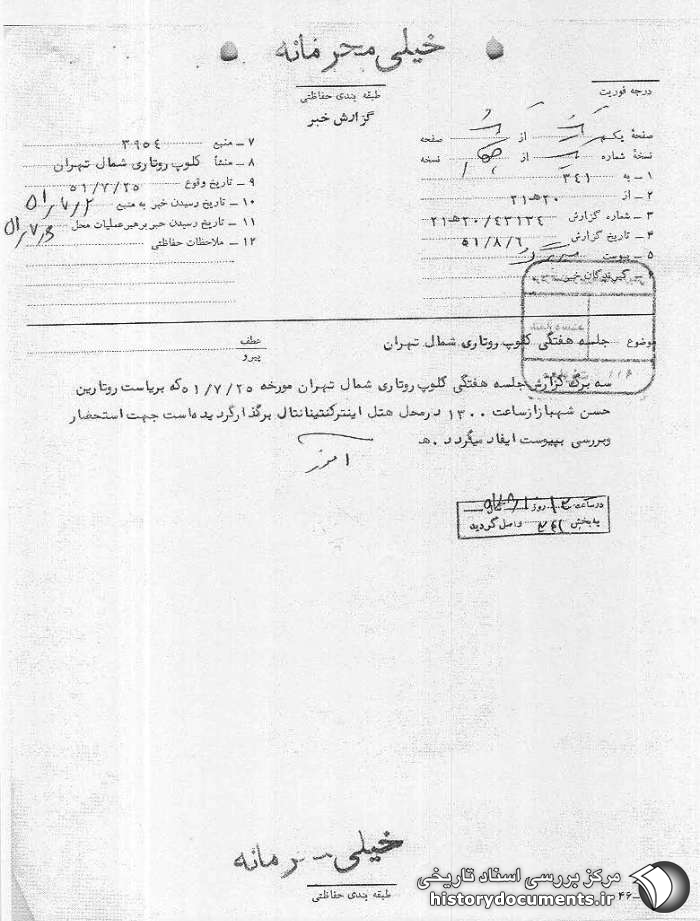 خیلی محرمانه
طبقه بندی حفاظتی
گزارش خبر
درجه فوریت
صفحه یکم از صفحه
نسخه شماره از نسخه
۱ ـ به ۳۴۱
۲ ـ از ۲۰هـ۲۱
۳ ـ شماره گزارش ۲۱هـ۲۰/۴۳۱۳۴
۴ ـ تاریخ گزارش ۵۱/۸/۶
۵ ـ پیوست
۶ ـ گیرندگان خبر
۷ ـ منبع ۳۹۵۴
۸ ـ منشأ کلوپ روتاری شمال تهران
۹ ـ تاریخ وقوع ۵۱/۷/۲۵
۱۰ ـ تاریخ رسیدن خبر به منبع
۱۱ ـ تاریخ رسیدن خبر برهبر عملیات محل
۱۲ ـ ملاحظات حفاظتی
موضوع جلسه هفتگی کلوپ روتاری شمال تهران
عطف
پیرو
سه برگ گزارش جلسه هفتگی کلوپ روتاری شمال تهران مورخه ۵۱/۷/۲۵ که بریاست روتارین
حسن شهباز از ساعت ۱۳۰۰ در محل هتل اینترکنتینانتال برگذار گردیده است جهت استحضار
وبررسی بپیوست ایفاد میگردد .هـ
در ساعت روز
به بخش ۳۴۱ واصل گردید
خیلی محرمانه
طبقه بندی حفاظتی
۴۶
مرکز بررسی اسناد تاریخی
historydocuments.ir